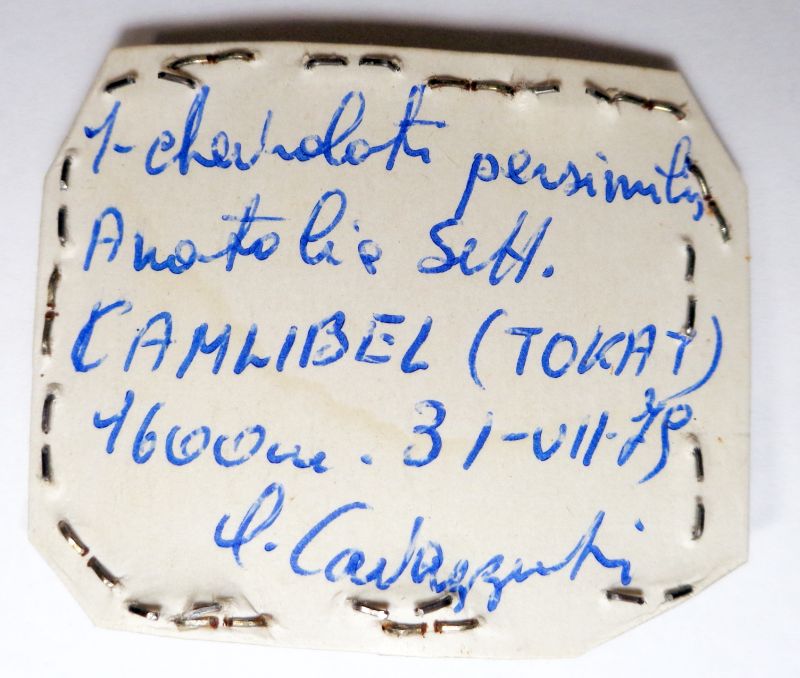 1-chevrolati persimilis
Anatolia Sett.
CAMLIBEL (TOKAT)
1600m. 31-VII-79
P. Cavazzuti